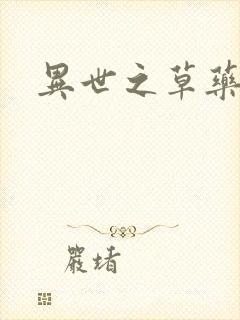 異世之草藥
嚴堵